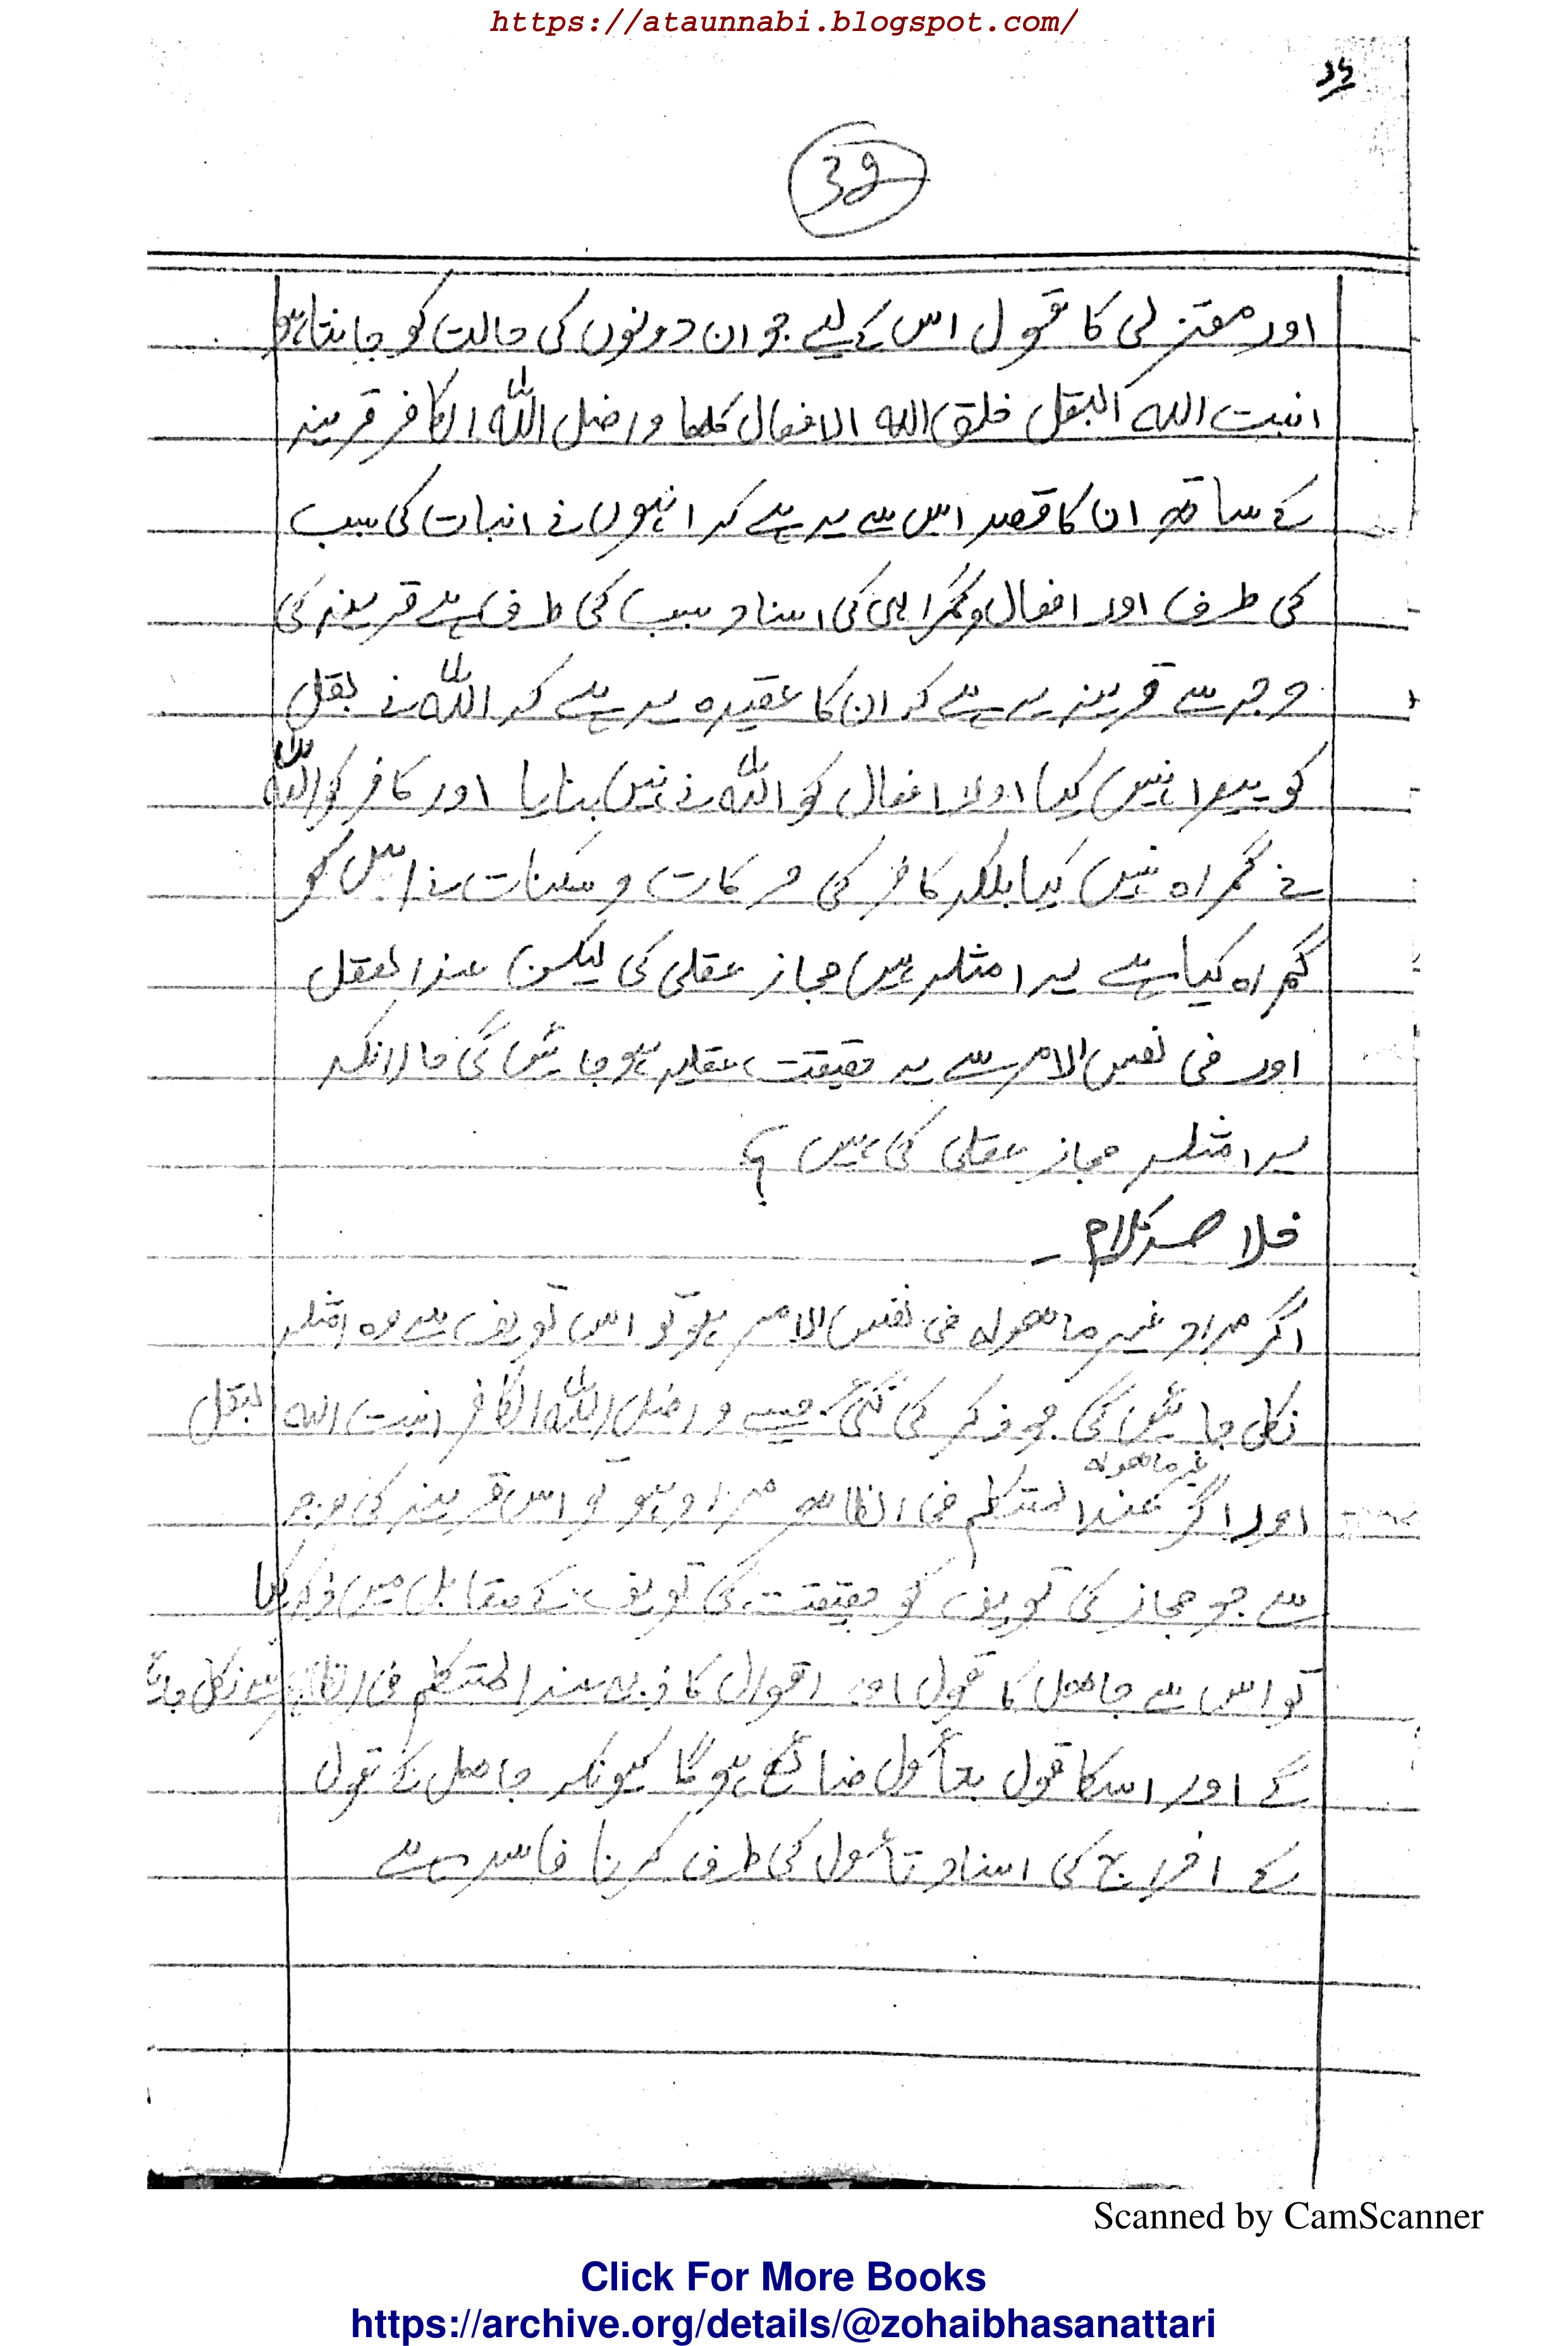 https://ataunnabi.blogspot.com/
39
اور معتزلی کا قول اس کے لیے جو ان دونوں کی حالت کو جانتا ہو
انبت اللہ البقل خلق اللہ الافعال کلھا و اضل اللہ الکافر قرینہ
کے ساتھ ان کا قصد اس سے یہ ہے کہ انہوں نے انبات کی سبب
کی طرف اور افعال و گمراہی کی اسناد سبب کی طرف ہے قرینہ کی
وجہ سے قرینہ یہ ہے کہ ان کا عقیدہ یہ ہے کہ اللہ نے بقل
کو پیدا نہیں کیا اولا افعال کو اللہ نے نہیں بنایا اور کافر کو اللہ
نے گمراہ نہیں کیا بلکہ کافر کی حرکات و سکنات نے اس کو
گمراہ کیا ہے یہ امثلہ ہیں مجاز عقلی کی لیکن عند العقل
اور فی نفس الامر سے یہ حقیقت عقلیہ ہو جائیں گی حالانکہ
یہ امثلہ مجاز عقلی کی ہیں ؟
خلاصہ کلام ۔
اگر مراد غیر ماھولہ فی نفس الامر ہو تو اس تعریف سے وہ امثلہ
نکل جائیں گی جو ذکر کی گئی جیسے و اضل اللہ الکافر انبت اللہ البقل
اور اگر غیر ماھولہ عند المتکلم فی الظاھر مراد ہو تو اس قرینہ کی وجہ
سے جو مجاز کی تعریف کو حقیقت کی تعریف کے مقابل میں ذکر کیا
تو اس سے جاھل کا قول اور اقوال کاذبہ عند المتکلم فی الظاہر سے نکل جائیں
گے اور اسکا قول بتأول ضائع ہو گا کیونکہ جاھل کے قول
کے اخراج کی اسناد تأول کی طرف کرنا فاسد ہے
Scanned by CamScanner
Click For More Books
https://archive.org/details/@zohaibhasanattari